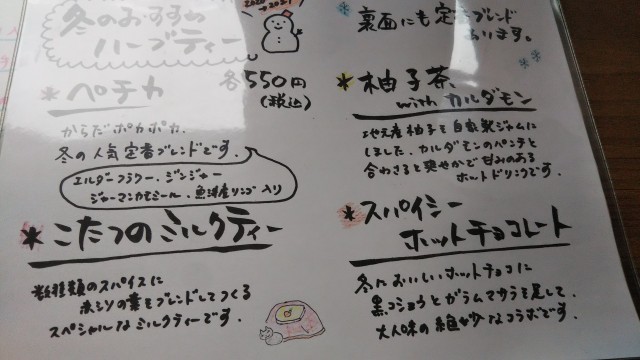 冬のおすすめ
ハーブティー
2020→2021
＊ペチカ 各550円
(税込)
からだポカポカ、
冬の人気定番ブレンドです。
エルダーフラワー、ジンジャー
ジャーマンカモミール、魚津産リンゴ入り
＊こたつのミルクティー
数種類のスパイスに
ホーリーの葉をブレンドしてつくる
スペシャルなミルクティーです。
裏面にも定番ブレンド
あります。
＊柚子茶
with カルダモン
地元産柚子を自家製ジャムに
しました。カルダモンのパンチと
合わさると爽やかで甘みのある
ホットドリンクです。
＊スパイシー
ホットチョコレート
冬においしいホットチョコに
黒コショウとガラムマサラを足して、
大人味の絶妙なコラボです。